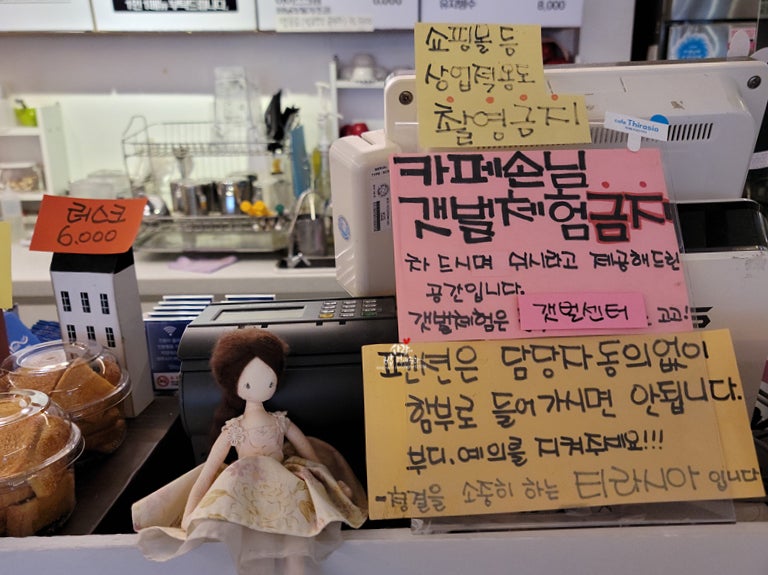 8,000
쇼핑몰 등
상업적용도
촬영금지
cafe Thirasia
카페손님
갯벌체험금지
차 드시며 쉬시라고 제공해드린
공간입니다.
갯벌체험은 갯벌센터 고고!
펜션은 담당자동의없이
함부로 들어가시면 안됩니다.
부디, 예의를 지켜주세요!!!
-청결을 소중히 하는 티라시아 입니다
러스크
6.000